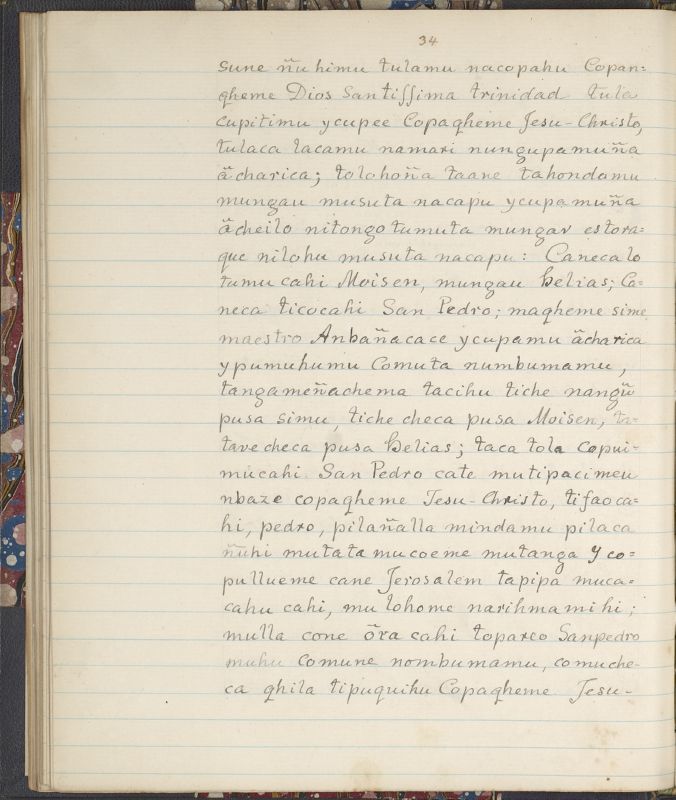 34
sune ñuhimu tulamu nacopahu Copan=
gheme Dios Santissima trinidad tula
cupitimu ycupee Copagheme Jesu-Christo,
tulaca lacamu namari nungupamuña
ãcharica; tolohoña taane tahondamu
mungau musuta nacapu ycupamuña
ãcheilo nitongo tumuta mungav estora=
que nilohu musuta nacapu: Canecalo
tumu cahi Moisen, mungau helias; Ca=
neca ticocahi San Pedro; magheme sime
maestro Anbañacace ycupamu ãcharica
ypumuhumu Comuta numbumamu,
tangameñachema tacihu tiche nangũ
pusa simu, tiche checa pusa Moisen, ta=
tave checa pusa helias; taca tola copui=
mucahi San Pedro cate mutipacimeu
nbaze copagheme Jesu-Christo, tifaoca=
hi, pedro, pilañalla mindamu pilaca
ñuhi mutata mucoeme mutanga y co=
pullueme cane Jerosalem tapipa muca=
cahu cahi, mu lohome narihmamihi;
mulla cone õra cahi toparco Sanpedro
muhu comune nombumamu, comuche-
ca ghila tipuquihu Copagheme Jesu-